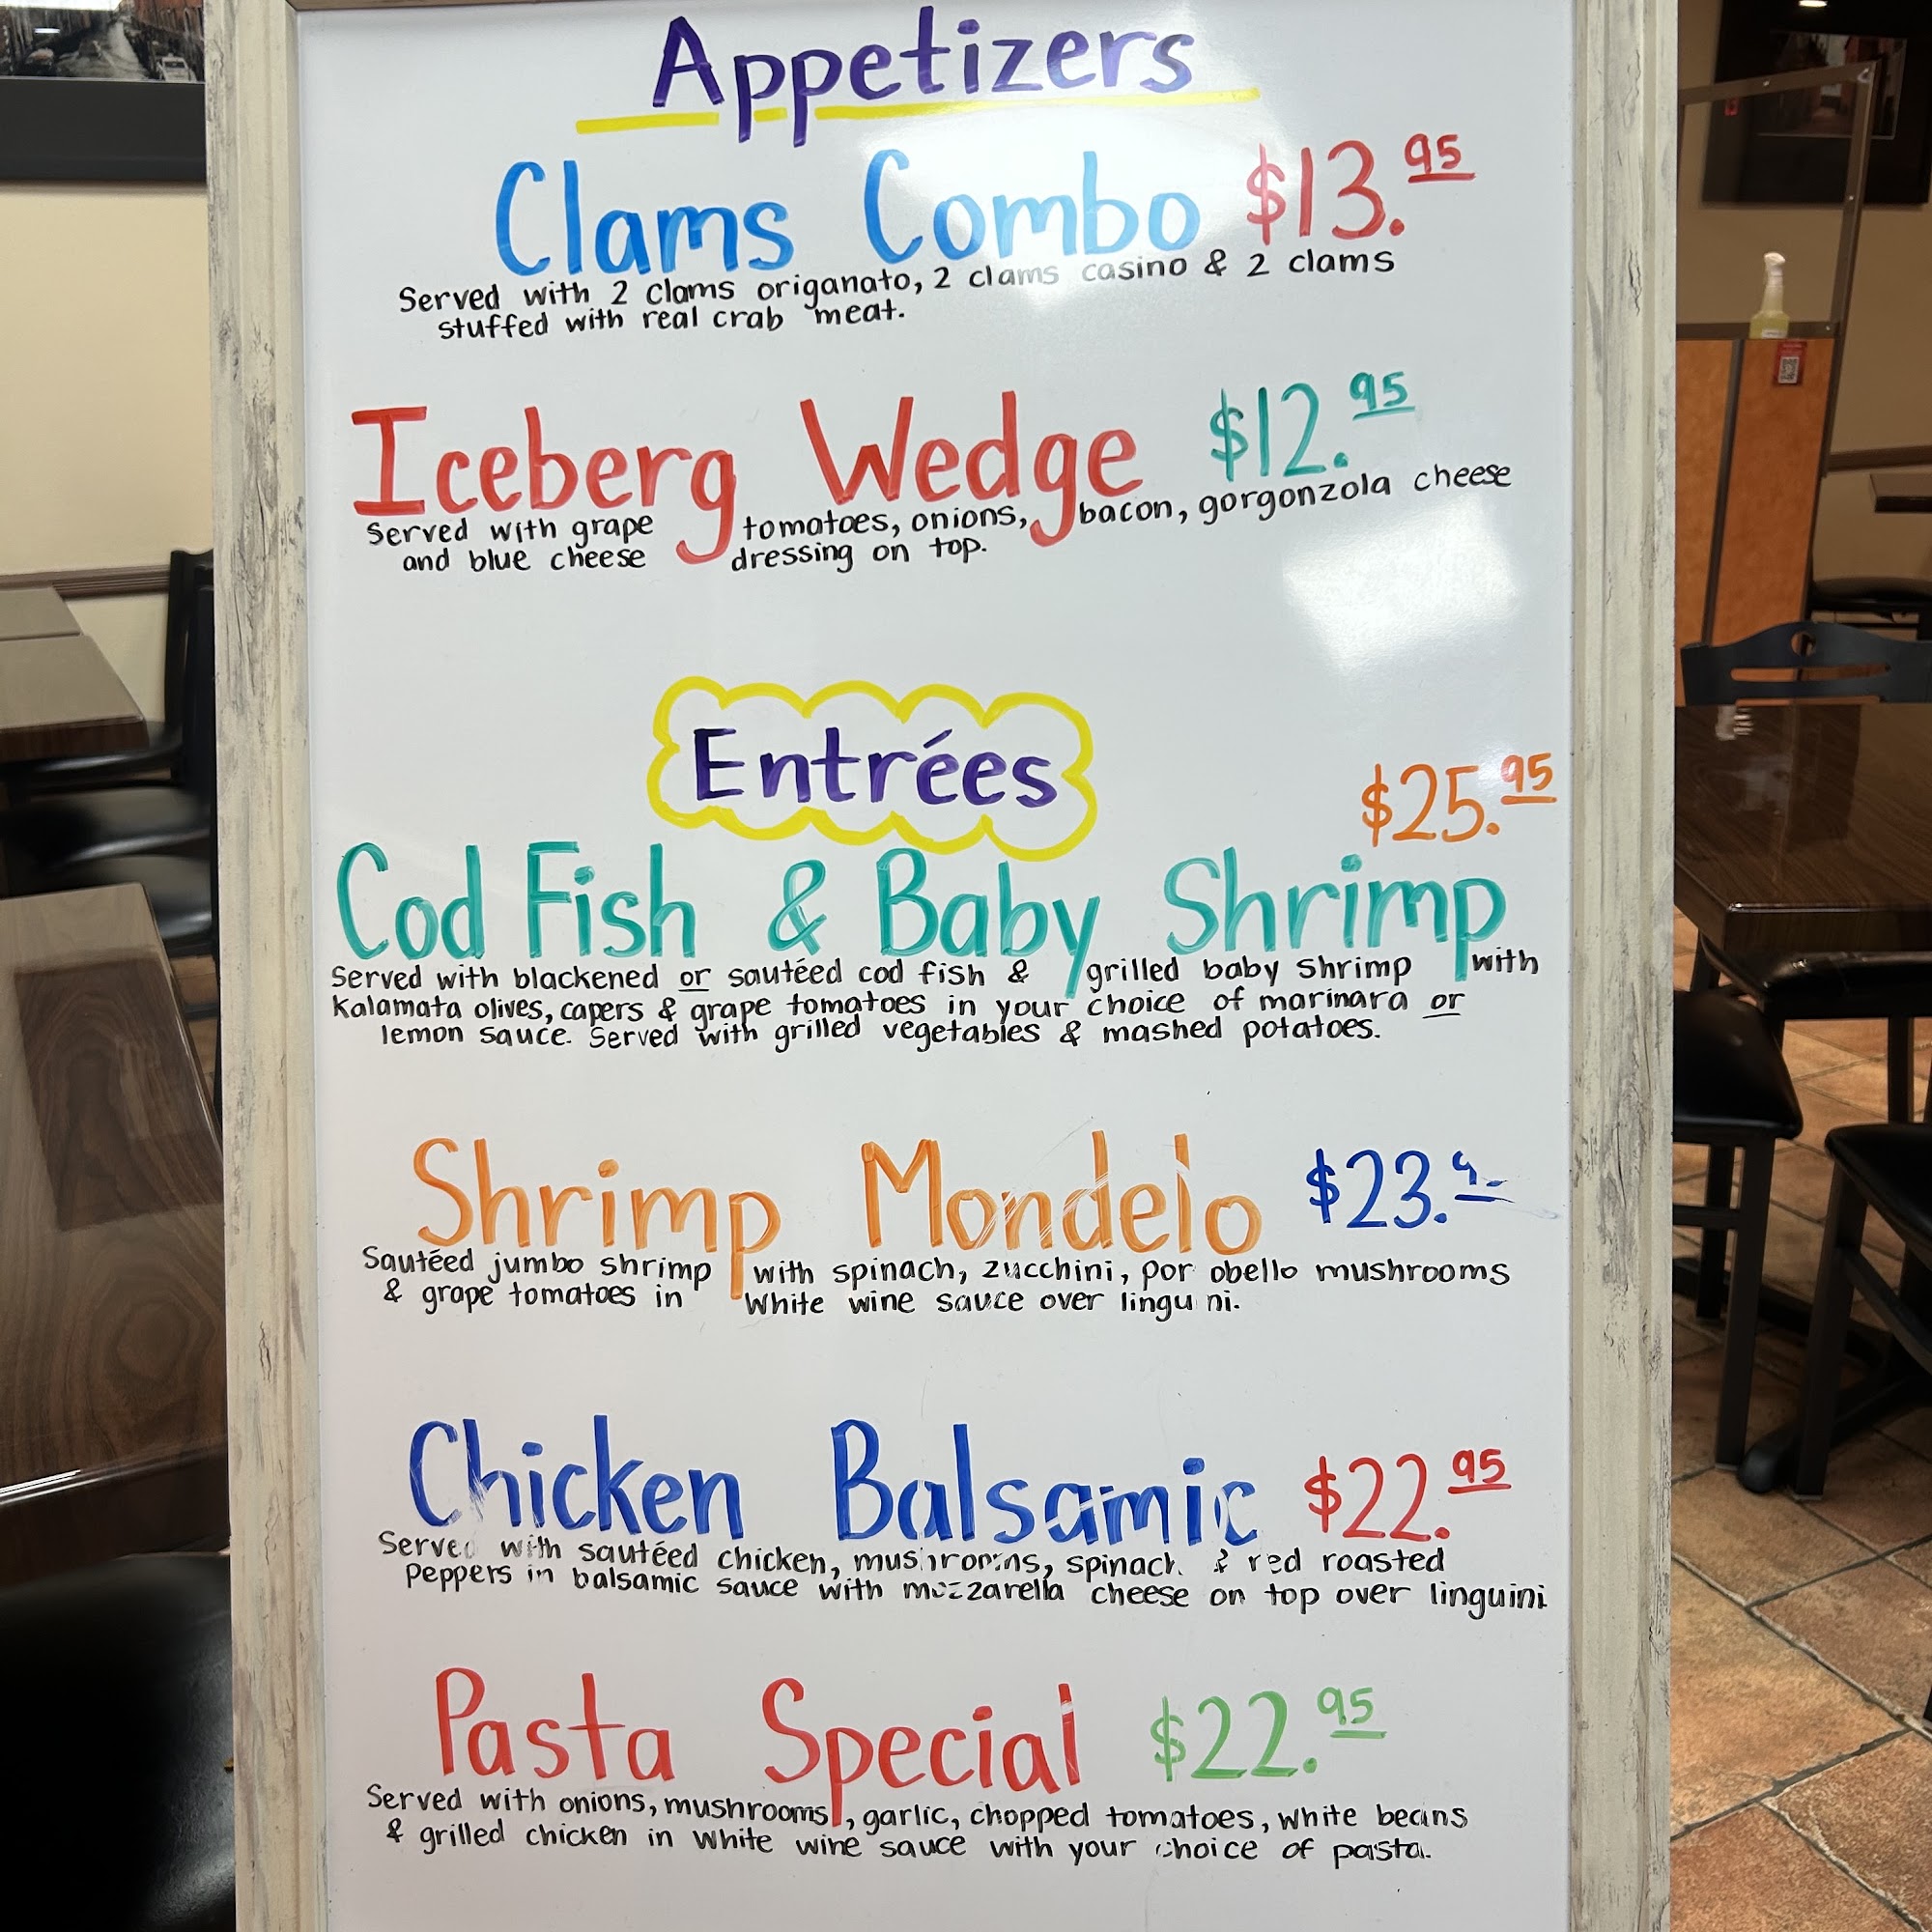 Appetizers
Clams Combo $13.95
Served with 2 clams origanato, 2 clams casino & 2 clams
stuffed with real crab meat.
Iceberg Wedge $12.95
Served with grape tomatoes, onions, bacon, gorgonzola cheese
and blue cheese dressing on top.
Entrées
$25.95
Cod Fish & Baby Shrimp
Served with blackened or sautéed cod fish & grilled baby shrimp with
Kalamata olives, capers & grape tomatoes in your choice of marinara or
lemon sauce. Served with grilled vegetables & mashed potatoes.
Shrimp Mondelo $23.
Sautéed jumbo shrimp with spinach, zucchini, portobello mushrooms
& grape tomatoes in White wine sauce over linguini.
Chicken Balsamic $22.95
Served with sautéed chicken, mushrooms, spinach & red roasted
Peppers in balsamic sauce with mozzarella cheese on top over linguini
Pasta Special $22.95
Served with onions, mushrooms, garlic, chopped tomatoes, white beans
& grilled chicken in White wine sauce with your choice of pasta.